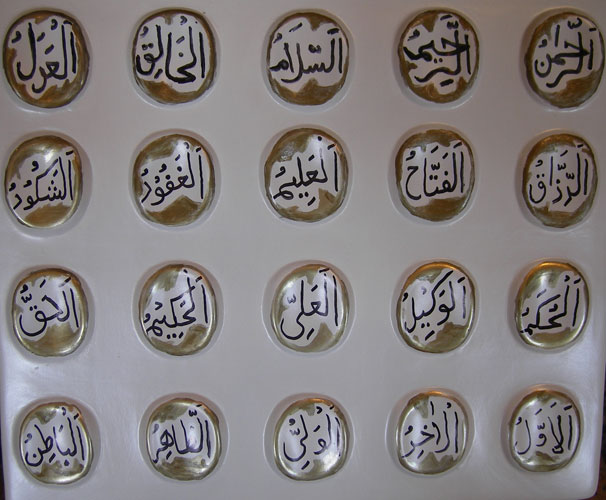 اَلرَّحْمٰنُ اَلرَّحِيمُ اَلسَّلَامُ اَلْخَالِقُ اَلْعَدْلُ
اَلرَّزَّاقُ اَلْفَتَّاحُ اَلْعَلِيمُ اَلْغَفُورُ اَلشَّكُورُ
اَلْحَكَمُ اَلْوَكِيلُ اَلْعَلِىُّ اَلْحَكِيمُ اَلْحَقُّ
اَلْاَوَّلُ اَلْاٰخِرُ اَلْوَلِىُّ اَلظَّاهِرُ اَلْبَاطِنُ